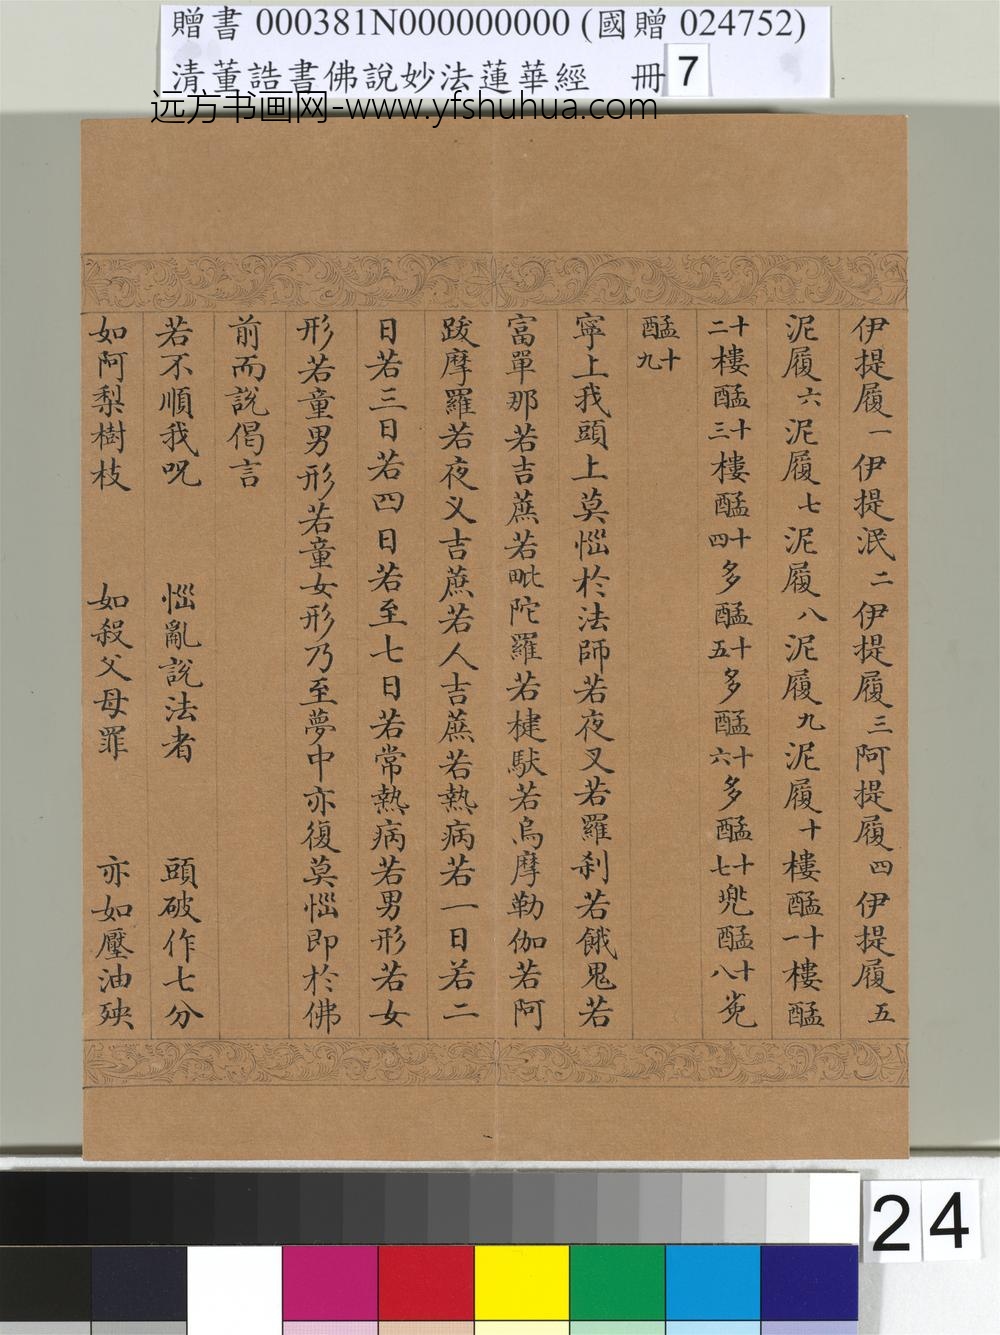 贈書 000381N000000000 (國贈 024752)
清董誥書佛說妙法蓮華經 冊 7
远方书画网-www.yfshuhua.com
伊提履一伊提泯二伊提履三阿提履四伊提履五
泥履六泥履七泥履八泥履九泥履十樓醯十一樓醯
十二樓醯十三樓醯十四多醯十五多醯十六多醯十七兠醯十八㝹
醯十九
寧上我頭上莫惱於法師若夜叉若羅刹若餓鬼若
富單那若吉蔗若毗陀羅若楗馱若烏摩勒伽若阿
跋摩羅若夜义吉蔗若人吉蔗若熱病若一日若二
日若三日若四日若至七日若常熱病若男形若女
形若童男形若童女形乃至夢中亦復莫惱即於佛
前而說偈言
若不順我呪 惱亂說法者 頭破作七分
如阿梨樹枝 如殺父母罪 亦如壓油殃
24